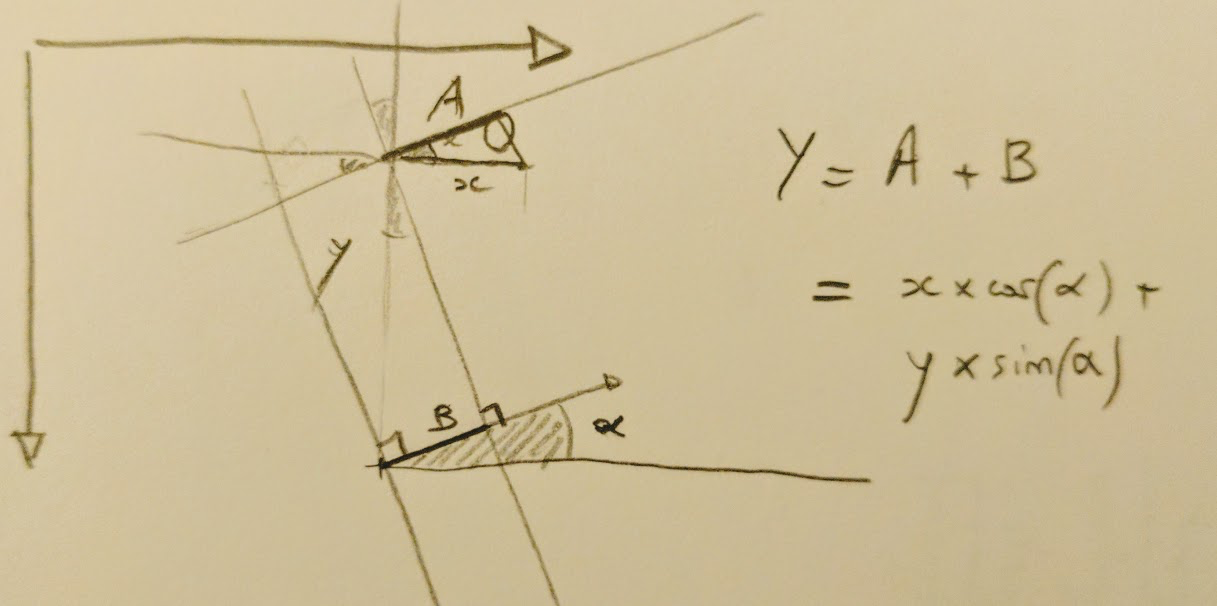 A
x
x
y
B
α
Y = A + B
= x × cos(α) +
y × sin(α)